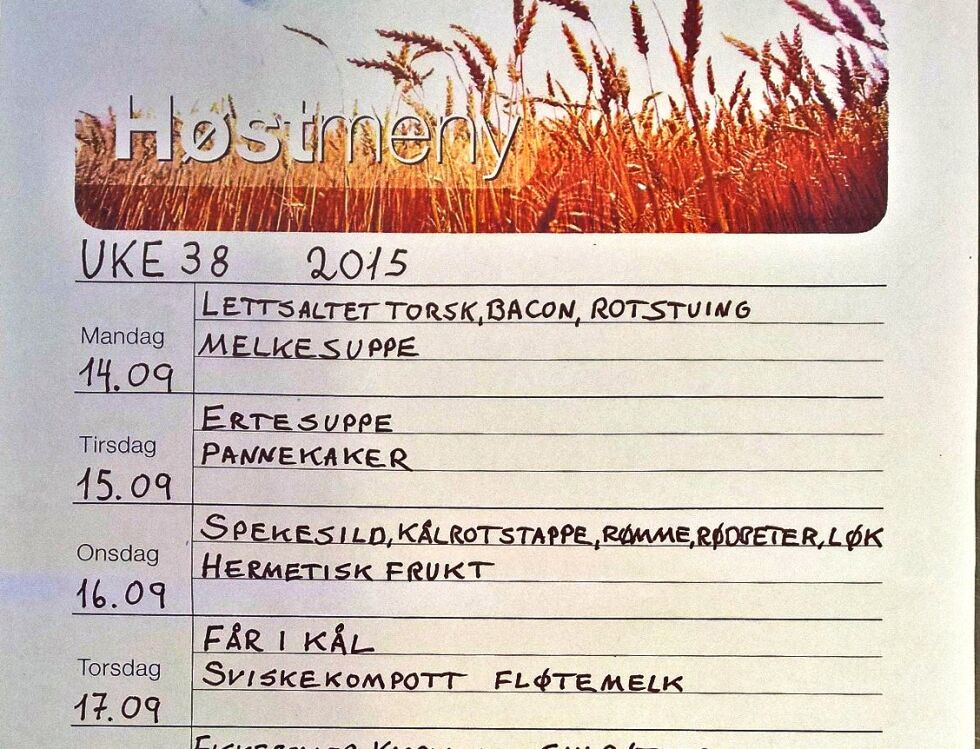 Høstmeny
UKE 38 2015
Mandag
14.09
LETTSALTET TORSK, BACON, ROTSTUING
MELKESUPPE
Tirsdag
15.09
ERTESUPPE
PANNEKAKER
Onsdag
16.09
SPEKESILD, KÅLROTSTAPPE, RØMME, RØDBETER, LØK
HERMETISK FRUKT
Torsdag
17.09
FÅR I KÅL
SVISKEKOMPOTT FLØTEMELK